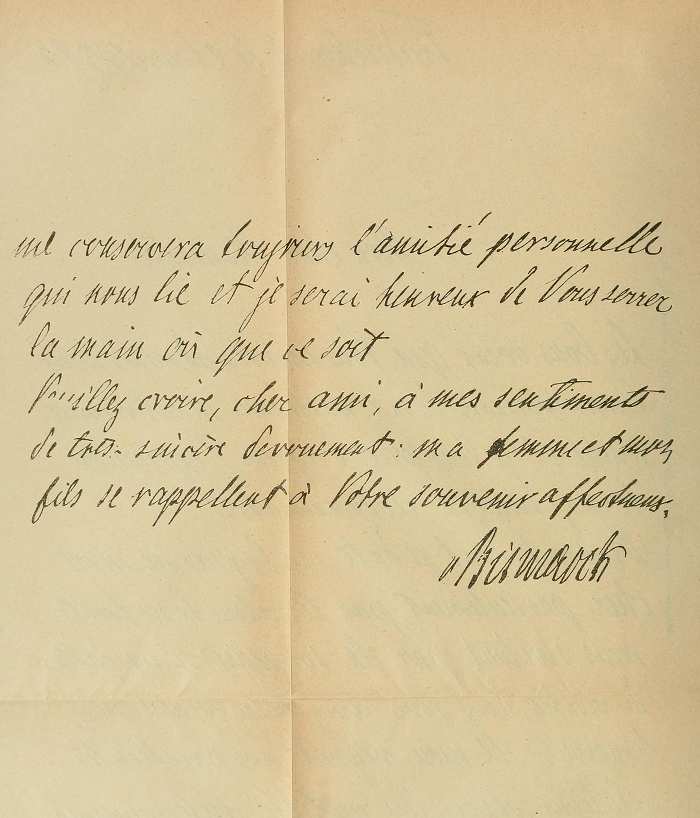 me conservera toujours l'amitié personnelle
qui nous lie et je serai heureux de Vous serrer
la main où que ce soit
Veuillez croire, cher ami, à mes sentiments
de très-sincère devouement: ma femme et mon
fils se rappellent à Votre souvenir affectueux.
v Bismarck